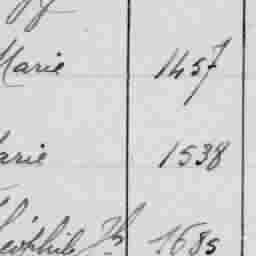 Marie 1457
arie 1538
éophile Jh 1685